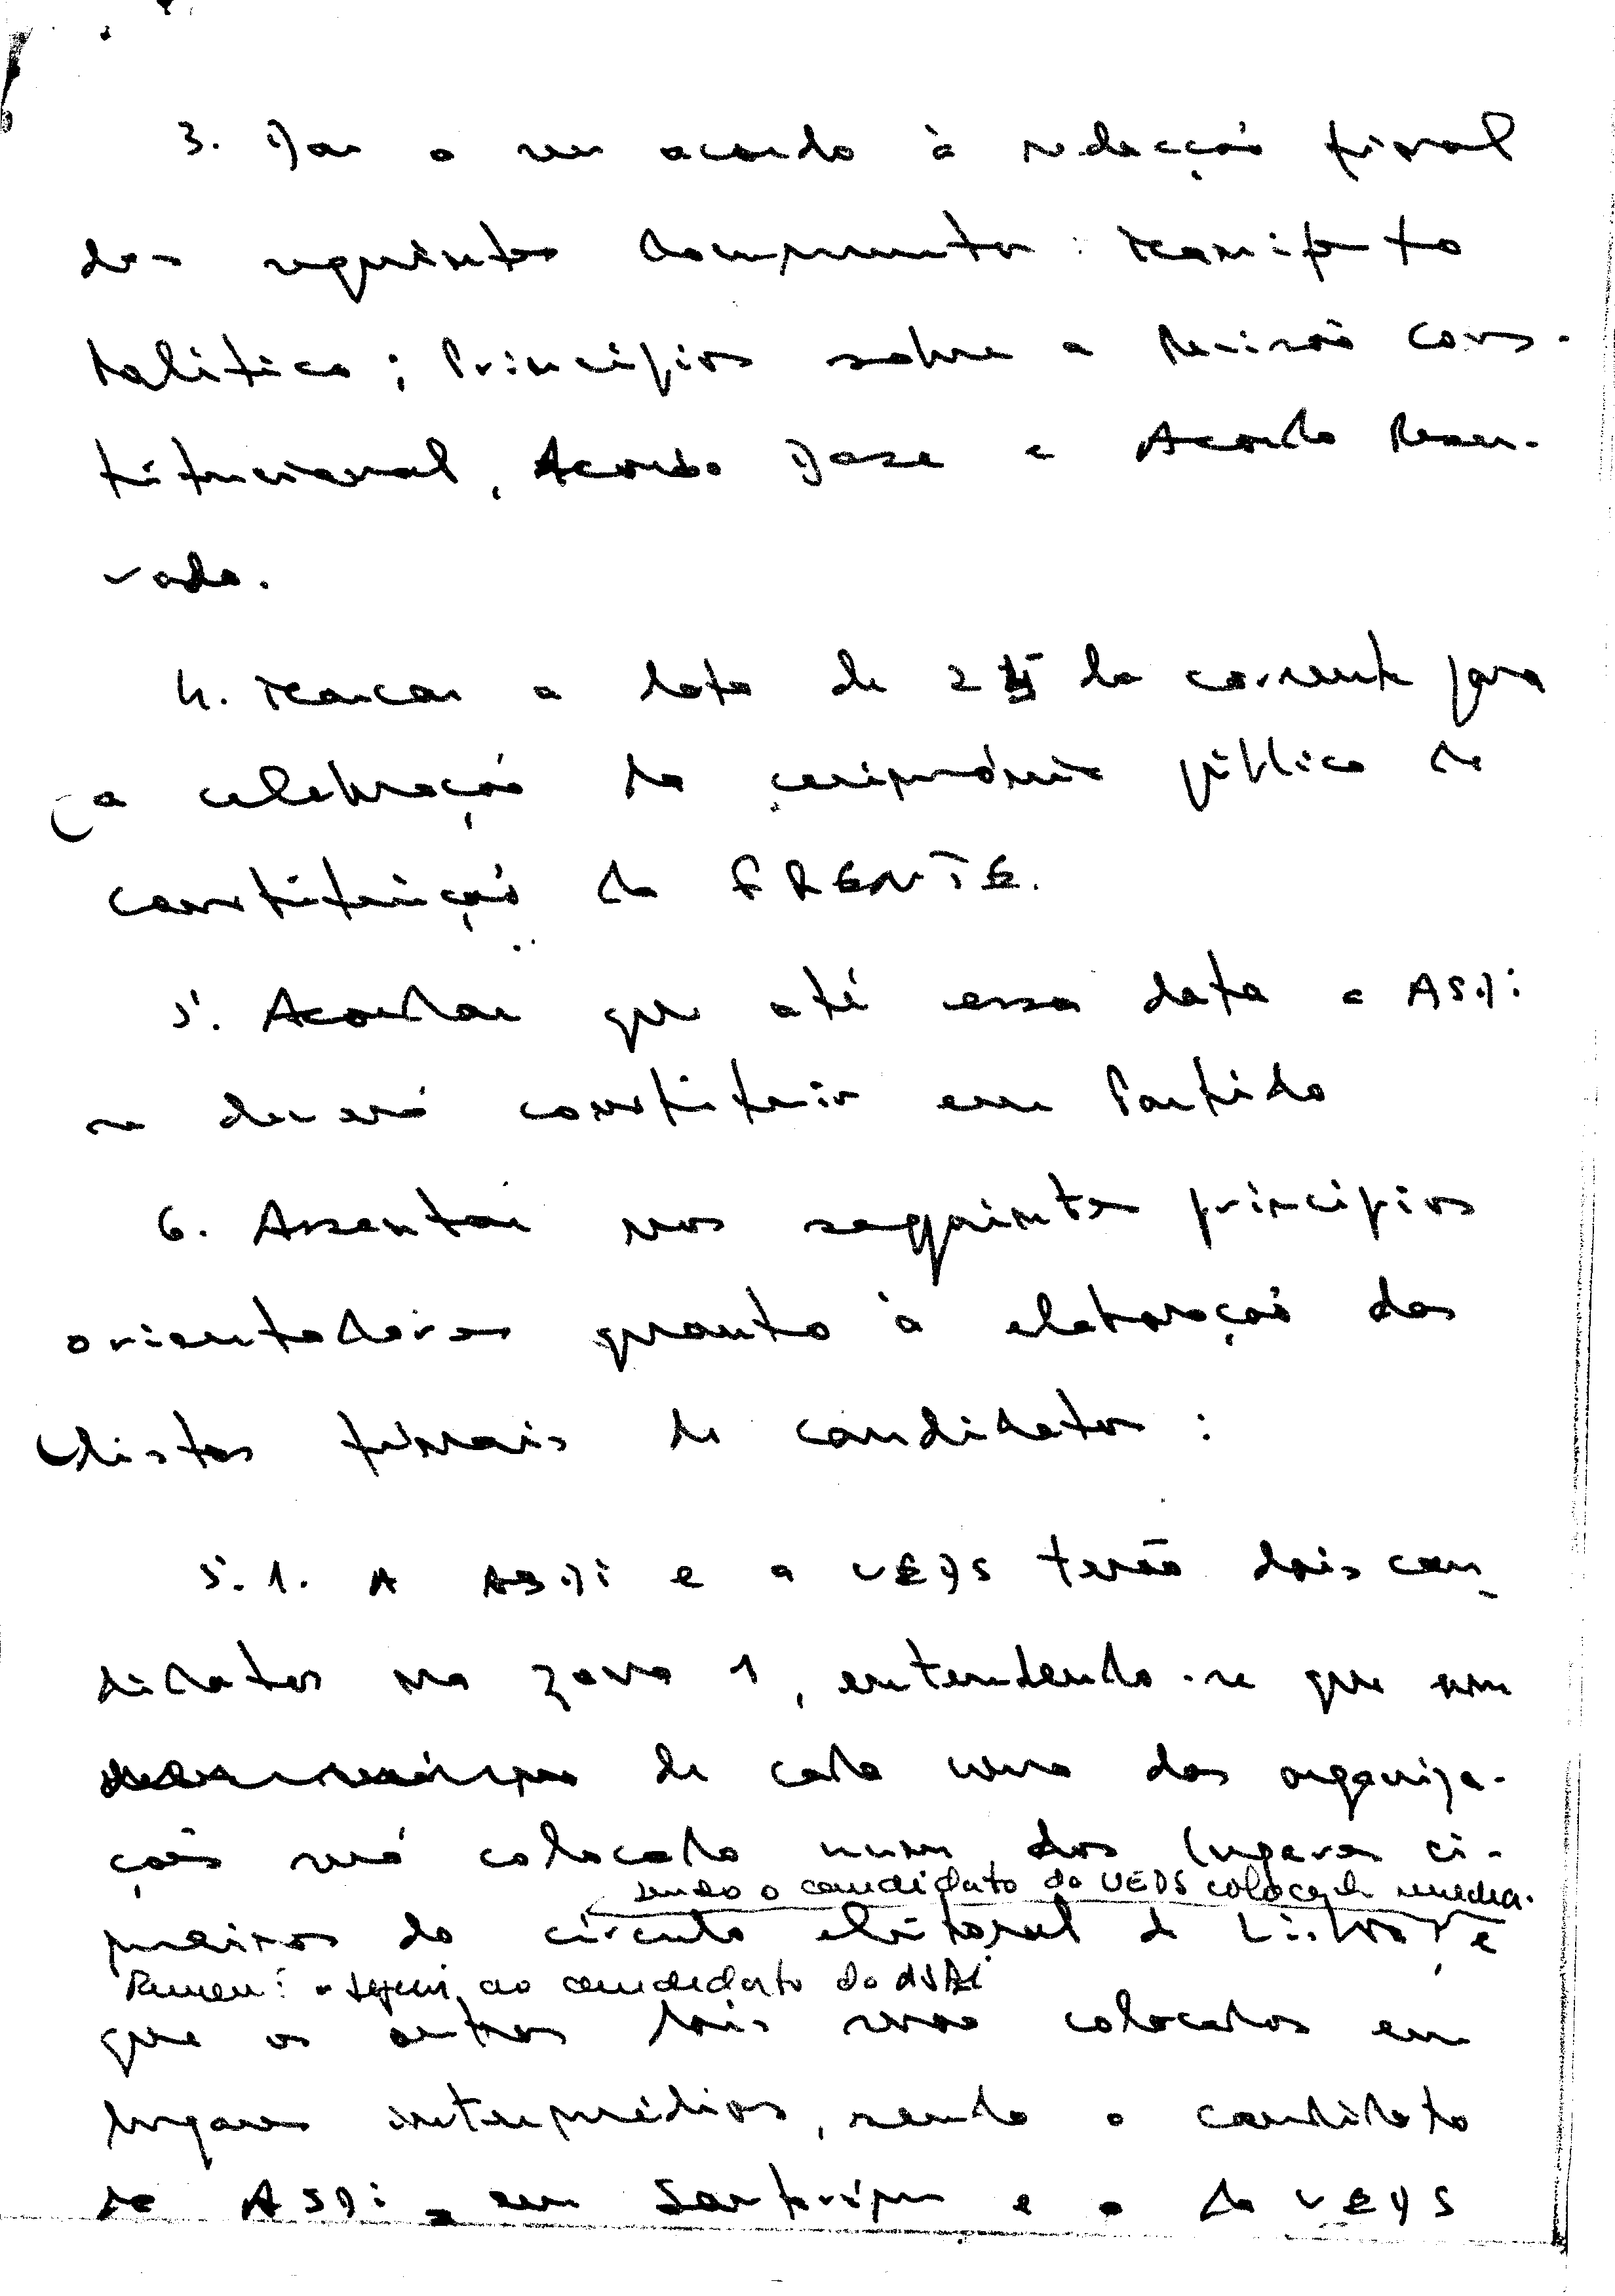 3. Dar o seu acordo à redacção final
dos seguintes documentos: Manifesto
Político; Princípios sobre a Revisão Cons-
titucional, Acordo Base e Acordo Reser-
vado.
4. Marcar a data de 2 do corrente para
a celebração da cerimónia pública de
constituição da FRENTE.
5. Acordar que até essa data a ASDI
se deverá constituir em Partido
6. Assentar nos seguintes princípios
orientadores quanto à elaboração das
listas finais de candidatos:
5.1. A ASDI e a UEDS terão dois can-
didatos na zona 1, entendendo-se que um
de cada uma das organiza-
ções será colocado num dos lugares ci-
sendo o candidato da UEDS colocado imedia-
meiros do círculo eleitoral de Lisboa, e
tamente a seguir ao candidato da ASDI
que os outros dois serão colocados em
lugares intermédios, sendo o candidato
da ASDI em Santarém e o da UEDS